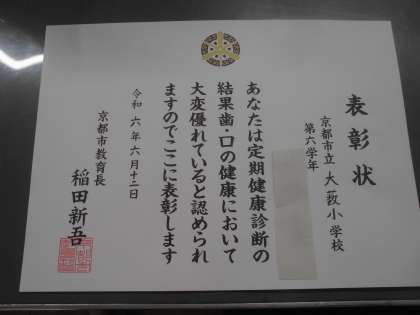 表彰状
京都市立 大薮小学校
第六学年
あなたは定期健康診断の
結果歯・口の健康において
大変優れていると認められ
ますのでここに表彰します
令和 六年 六月 十二日
京都市教育長
稲田新吾